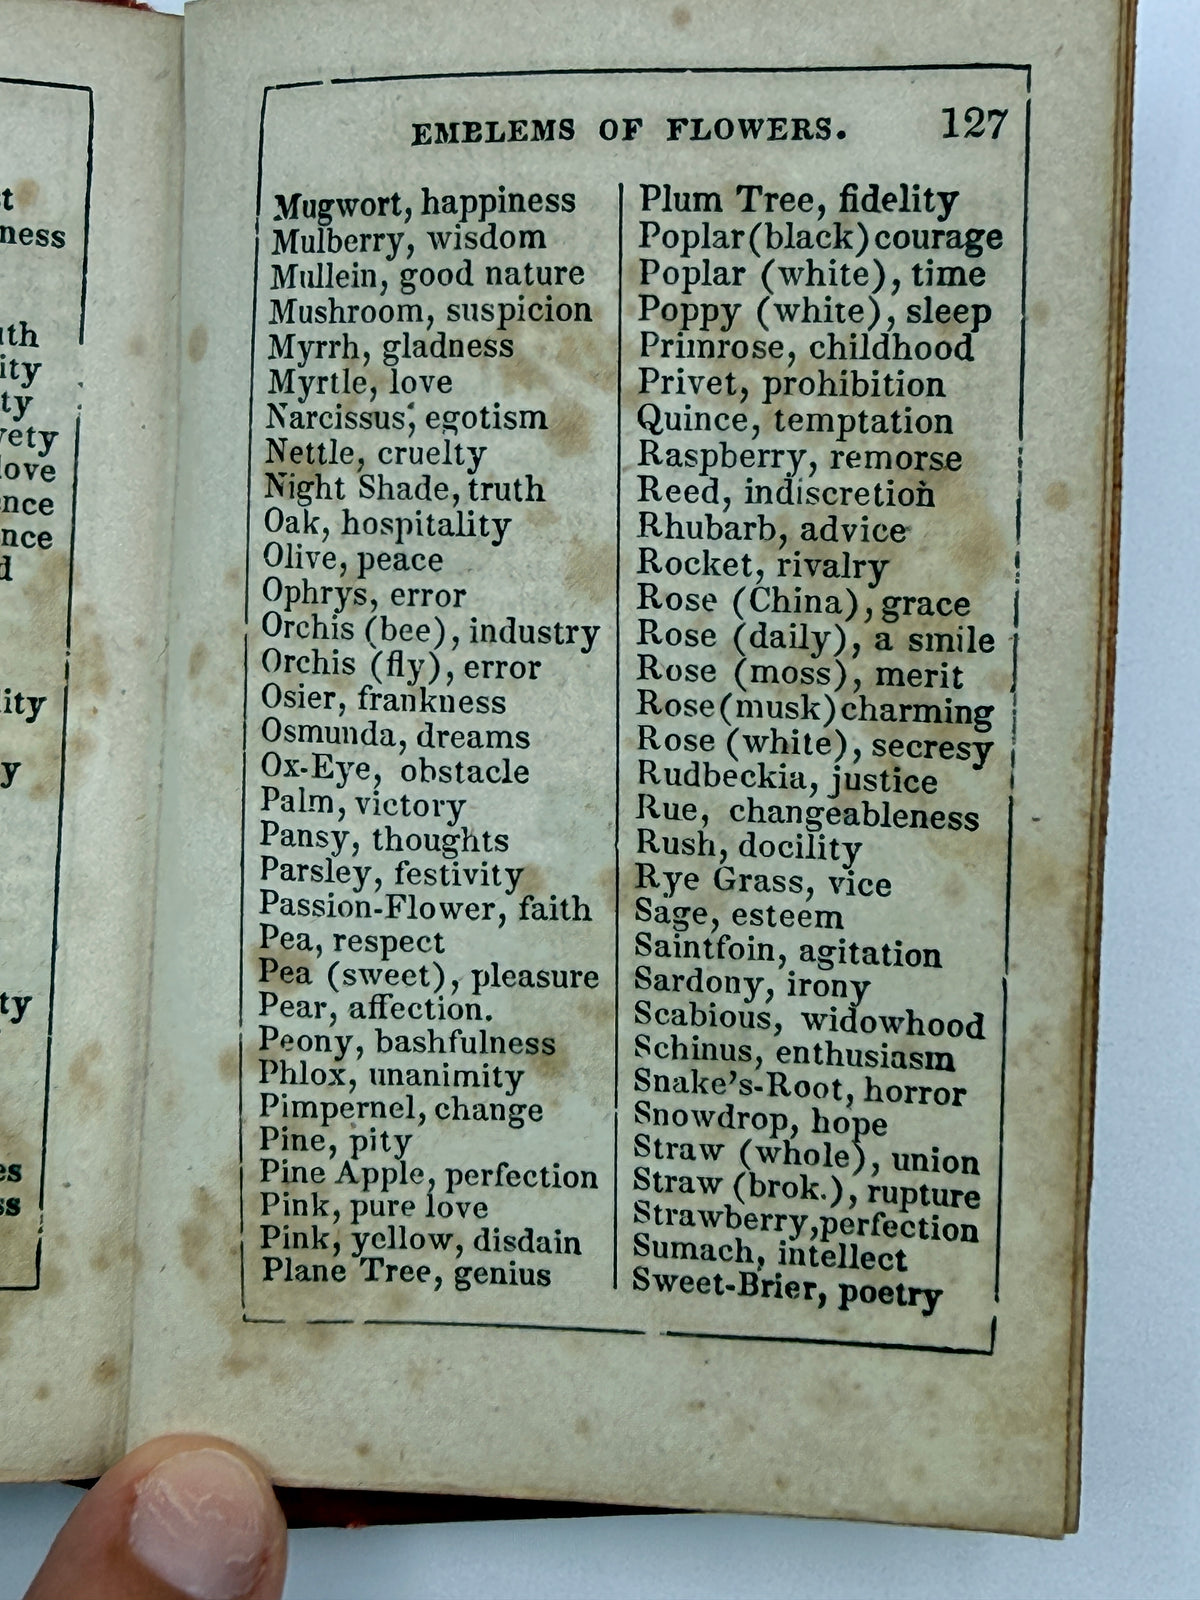 t
ness
uth
ity
ty
vety
love
nce
nce
d
lity
y
ty
es
ss
EMBLEMS OF FLOWERS. 127
Mugwort, happiness
Mulberry, wisdom
Mullein, good nature
Mushroom, suspicion
Myrrh, gladness
Myrtle, love
Narcissus, egotism
Nettle, cruelty
Night Shade, truth
Oak, hospitality
Olive, peace
Ophrys, error
Orchis (bee), industry
Orchis (fly), error
Osier, frankness
Osmunda, dreams
Ox-Eye, obstacle
Palm, victory
Pansy, thoughts
Parsley, festivity
Passion-Flower, faith
Pea, respect
Pea (sweet), pleasure
Pear, affection.
Peony, bashfulness
Phlox, unanimity
Pimpernel, change
Pine, pity
Pine Apple, perfection
Pink, pure love
Pink, yellow, disdain
Plane Tree, genius
Plum Tree, fidelity
Poplar (black) courage
Poplar (white), time
Poppy (white), sleep
Primrose, childhood
Privet, prohibition
Quince, temptation
Raspberry, remorse
Reed, indiscretion
Rhubarb, advice
Rocket, rivalry
Rose (China), grace
Rose (daily), a smile
Rose (moss), merit
Rose (musk) charming
Rose (white), secresy
Rudbeckia, justice
Rue, changeableness
Rush, docility
Rye Grass, vice
Sage, esteem
Saintfoin, agitation
Sardony, irony
Scabious, widowhood
Schinus, enthusiasm
Snake's-Root, horror
Snowdrop, hope
Straw (whole), union
Straw (brok.), rupture
Strawberry, perfection
Sumach, intellect
Sweet-Brier, poetry